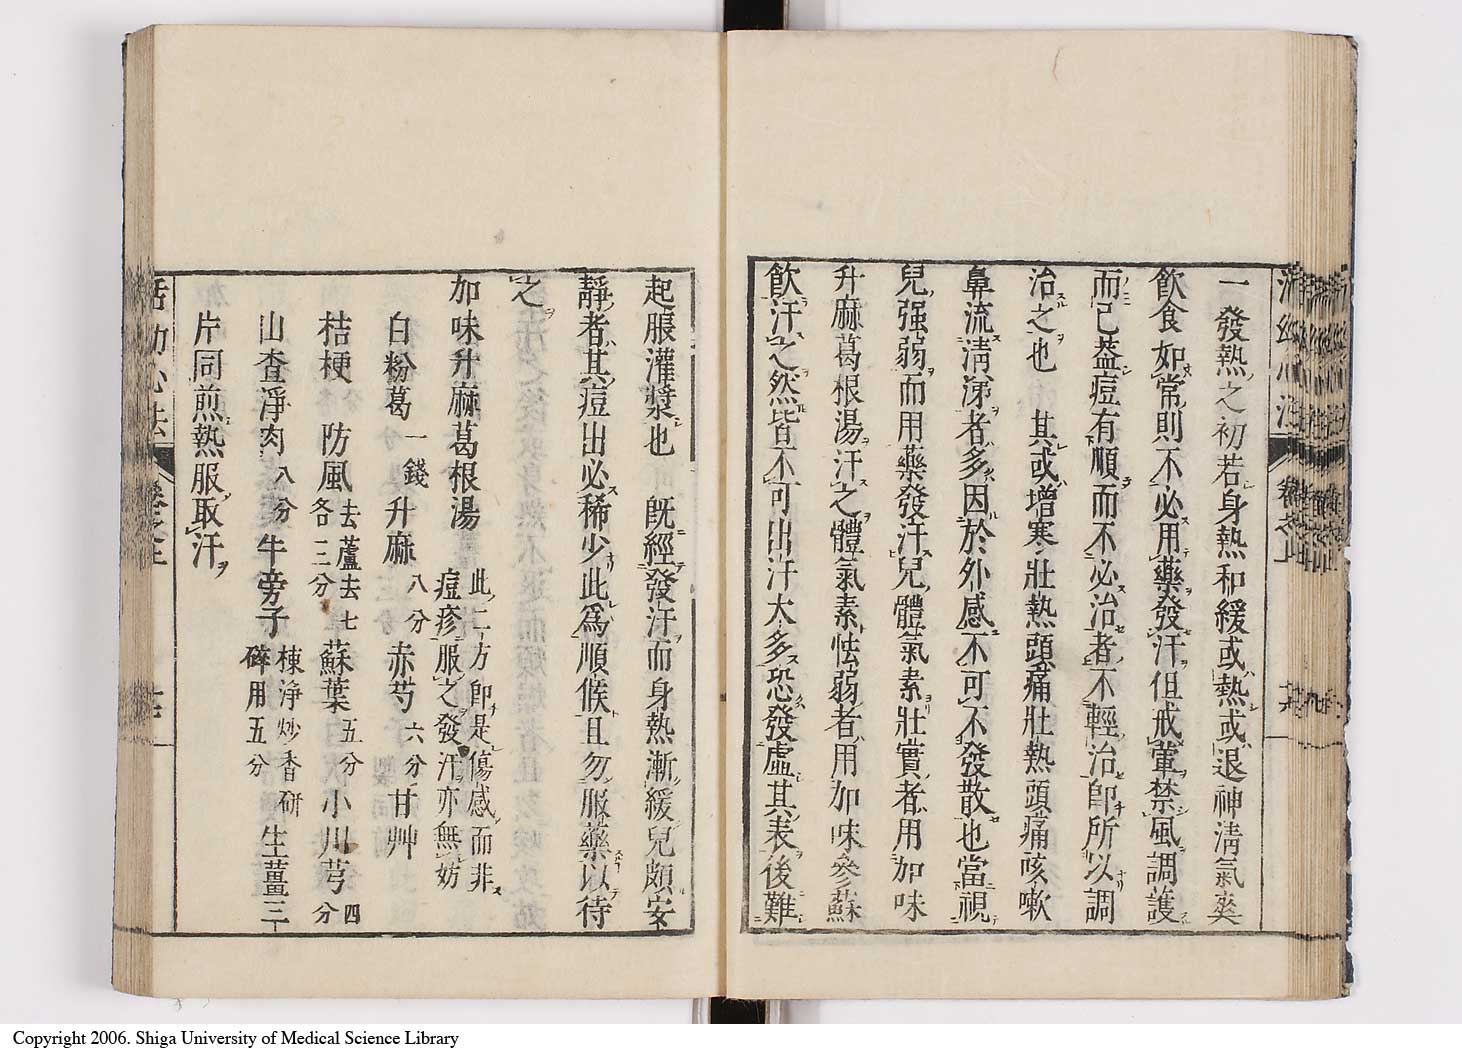 一發熱之初若身熱和緩或熱或退神淸氣爽
飮食如常則不必用藥發汗但戒葷禁風調護
而已葢痘有順而不必治者不輕治卽所以調
治之也 其或增寒壯熱頭痛壯熱頭痛咳嗽
鼻流淸涕者多因於外感不可不發散也當視
兒强弱而用藥發汗兒體氣素壯實者用加味
升麻葛根湯汗之體氣素怯弱者用加味參蘇
飮汗之然皆不可出汗大多恐發虛其表後難
起脹灌漿也 旣經發汗而身熱漸緩兒頗安
靜者其痘出必稀少此爲順候且勿服藥以待
之
加味升麻葛根湯 此二方卽是傷感而非
痘疹服之發汗亦無妨
白粉葛一錢 升麻八分 赤芍六分 甘艸
桔梗 防風去蘆去七
各三分 蘇葉五分 小川芎四
分
山査淨肉八分 牛旁子棟淨炒香研
碎用五分 生薑三
片同煎熱服取汗
活幼心法 卷之上
活幼心法 卷之上
Copyright 2006. Shiga University of Medical Science Library